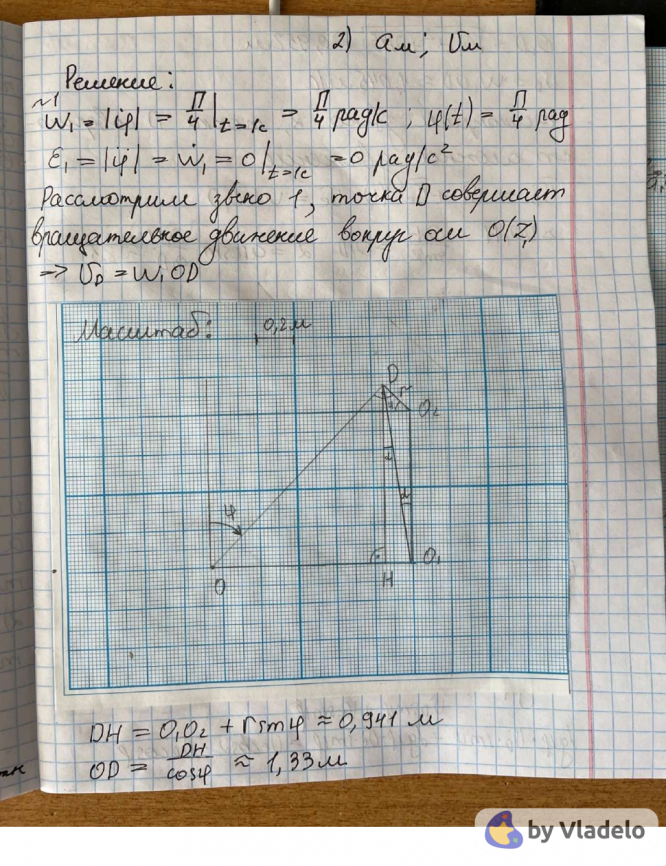 2) aм; Vм
Решение:
~1
ω₁ = |φ̇| = π/4 |t=1c = π/4 рад/с ; φ(t) = π/4 рад
ε₁ = |φ̈| = ω̇₁ = 0 |t=1c = 0 рад/с²
Рассмотрим звено 1, точка D совершает
вращательное движение вокруг оси O(Z₁)
=> V_D = ω₁OD
Масштаб: 0,2м
D
r
O₂
φ
O
H
O₁
DH = O₁O₂ + r sinφ ≈ 0,941 м
OD = DH/cosφ ≈ 1,33м
by Vladelo